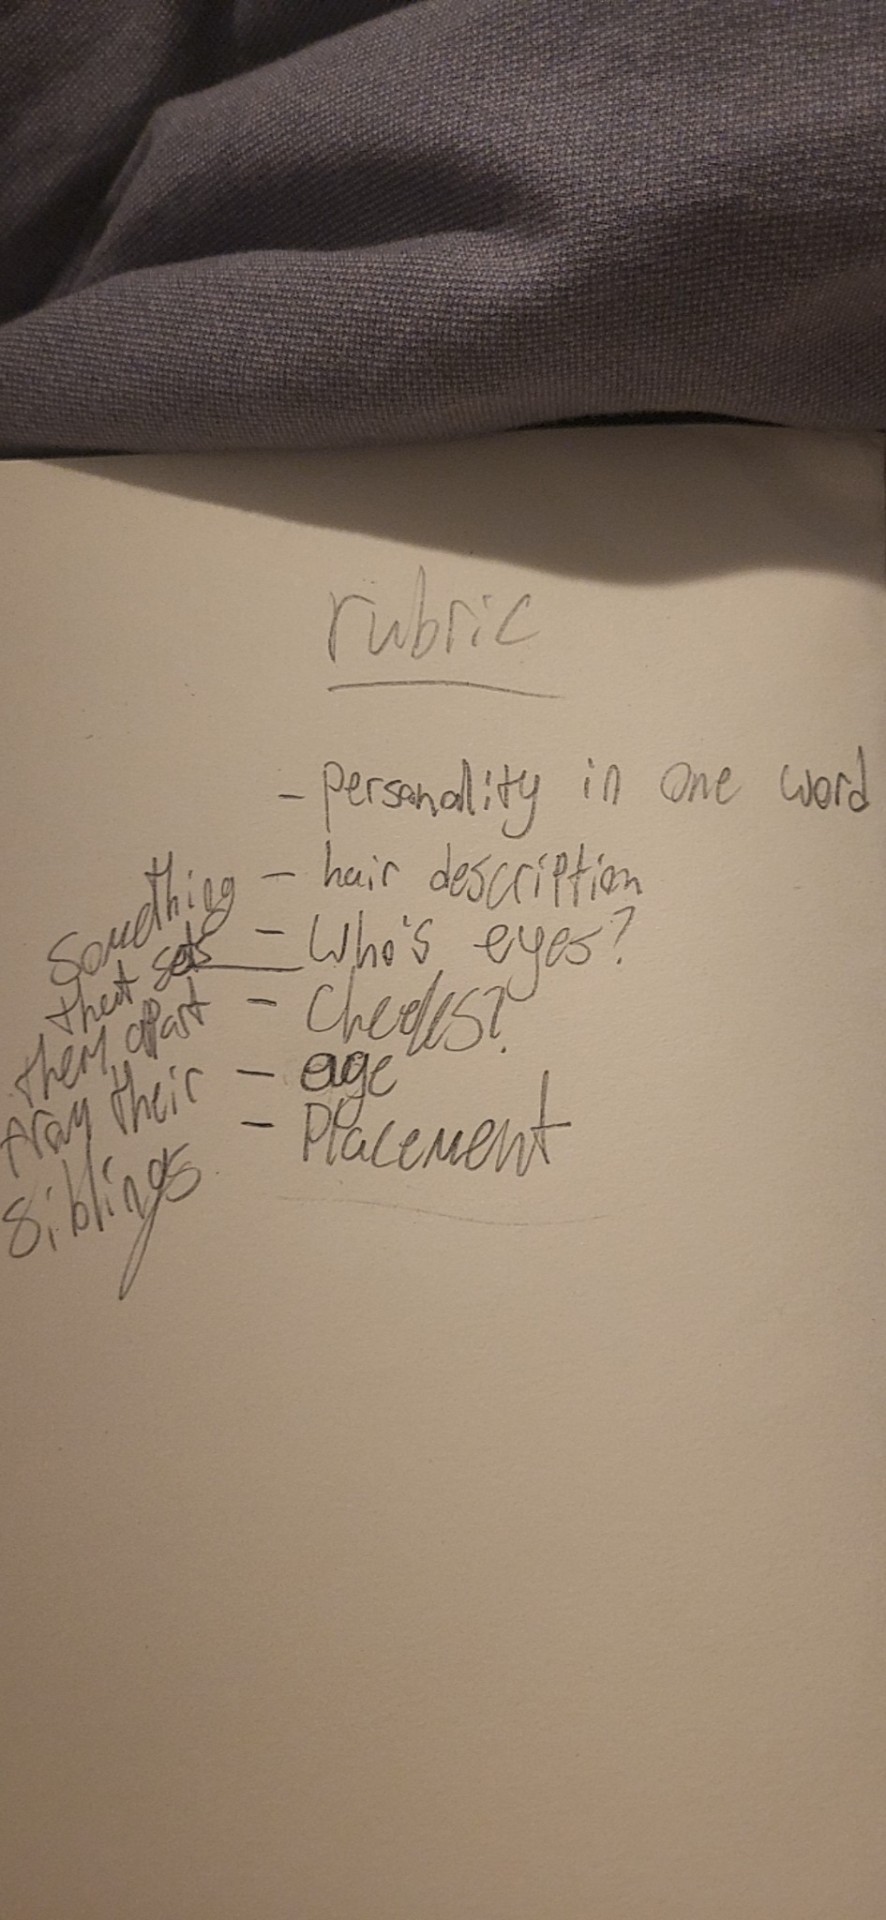 rubric
- Personality in one word
- hair description
- Who's eyes?
- Cheeks?
- age
- Placement
Something
that sets
them apart
from their
siblings